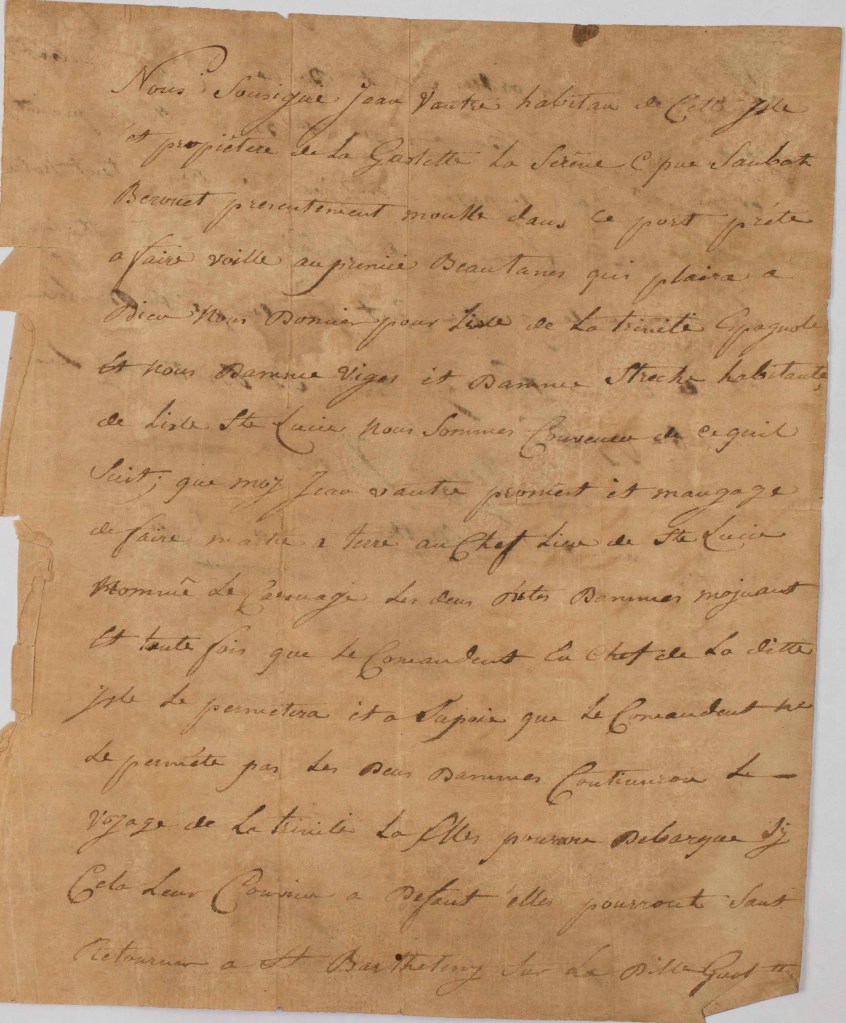 Nous Sousigné Jean Vautre habitan de Cette Isle
et propiétere de La Goelette La Sirene C pne Saubat
Berouet presentement moulle dans Ce port préte
a faire voille au premié Beautans qui plaira a
Dieu Nous Donner pour Lisle de La trinité Espagnole
Et Nous Damme Viges et Damme Stroche habitante
de Lisle Ste Lucie Nous Sommes Convenue de Ce quil
Suit; que moy Jean vautre promest et mangage
de faire maitre a terre au Chef Lieu de Ste Lucie
Nommé Le Carenage Les deus dites Dammes mojnant
Et toute fois que Le Comandent En Chef de La ditte
jsle Le permetera et a Supoié que Le Comandent ne
Le perméte pas Les Deus Dammes Continuron Le
Voyage de La trinité La Elles pourons Debarque Sy
Cela Leur Convien a Defaut élles pourront Sant
Retourner a St Barthelmy Sur La Ditte Guol tt